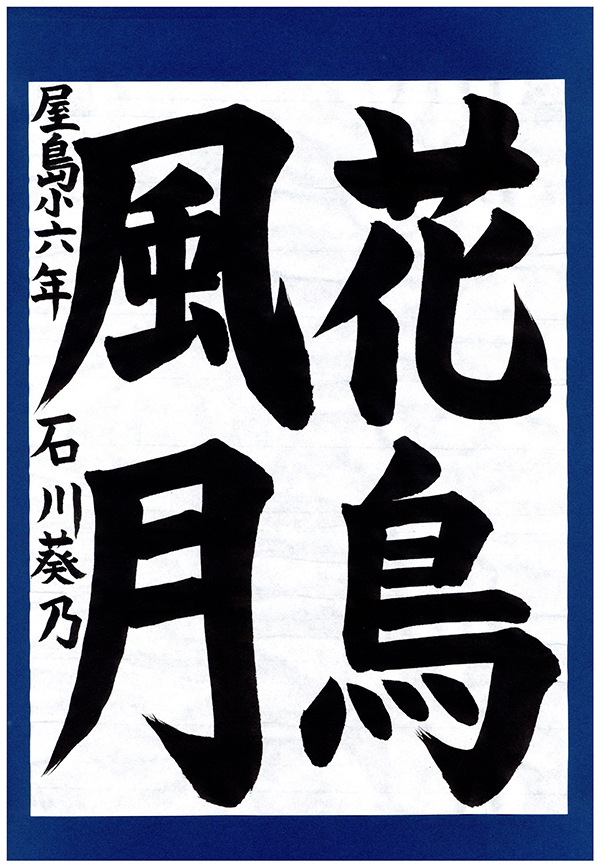 花鳥
風月
屋島小六年 石川葵乃